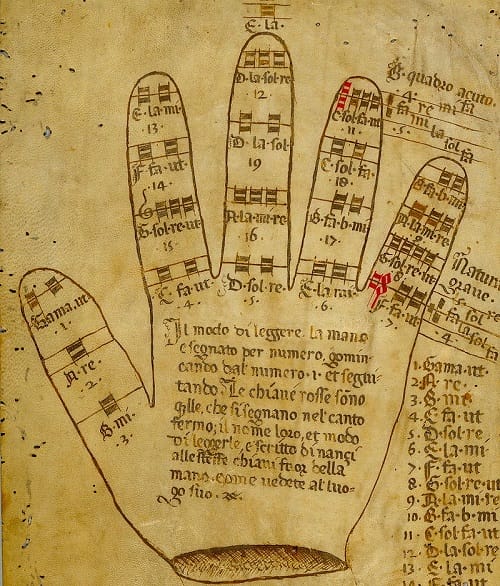 E·la·
B·quadro acuto·
·4· fa re mi fa
·5· mi la sol fa
E·la·mi·
13·
F·fa·ut·
·14·
G·sol·re·ut
15·
C·fa·ut·
·4·
D·la·sol·re
12
D·la·sol·
19
A·la·mi·re·
·16·
D·sol·re·
·5·
C·sol·fa·ut
11
C·sol·fa·
·18·
B·fa·b·mi·
·17·
E·la·mi·
·6·
B·fa·b·mi
A·la·mi·re·
9
G·sol·re·ut
8
F·fa·ut·
·7·
Natura
grave·
·5· fa sol
·4·
Gama·ut·
·1·
A·re·
·2·
B·mi·
3·
Il modo di leggere la mano
e segnato per numero, gomin
cando dal numero ·1· et segui
tando; Le chiave rosse sono
qlle, che si segnano nel canto
fermo; il nome loro, et modo
di leggerle, e scritto di nanci
alle stesse chiavi fuor della
mano come vedete al luo
go suo
1·Gama·ut·
2·A·re·
3·B·mi
4·C·fa·ut
5·D·sol·re
6·E·la·mi·
7·F·fa·ut
8·G·sol·re·ut
9·A·la·mi·re
10·B·fa·b·mi
11·C·sol·fa·ut
12·D·la·sol·re
13·E·la·mi
14·F·fa·ut